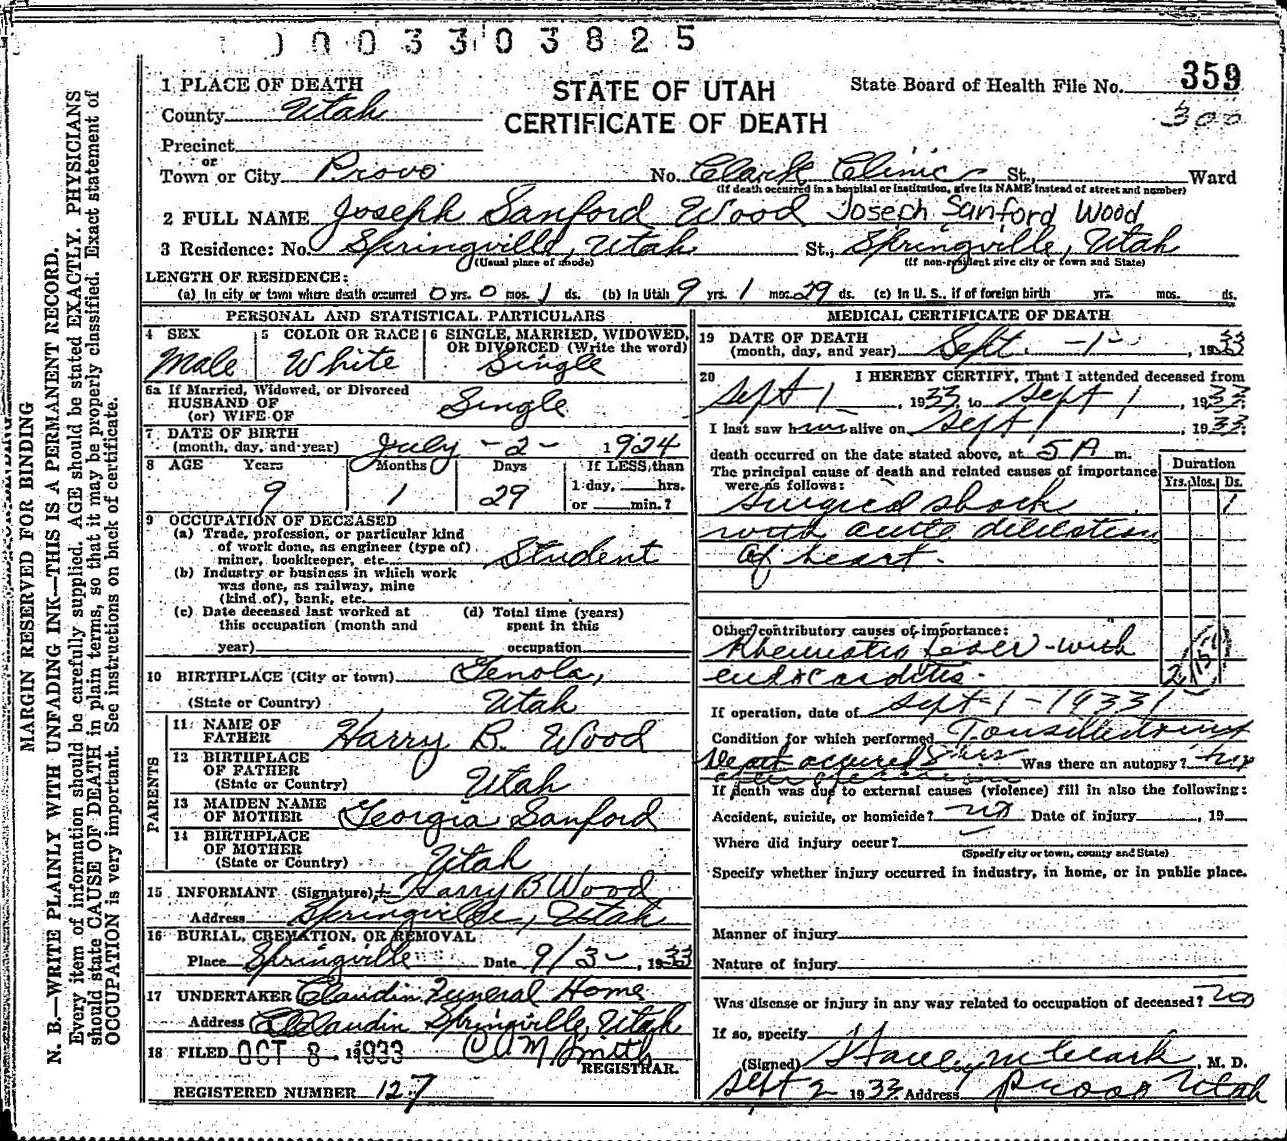 0003303825
1 PLACE OF DEATH
STATE OF UTAH
CERTIFICATE OF DEATH
State Board of Health File No. 359
300
County Utah
Precinct
or
Town or City Provo No. Clark Clinic St., Ward
(If death occurred in a hospital or institution, give its NAME instead of street and number)
2 FULL NAME Joseph Sanford Wood Joseph Sanford Wood
3 Residence: No. Springville, Utah St., Springville, Utah
(Usual place of abode) (If non-resident give city or town and State)
LENGTH OF RESIDENCE:
(a) In city or town where death occurred 0 yrs. 0 mos. 1 ds. (b) In Utah 9 yrs. 1 mos. 29 ds. (c) In U. S., if of foreign birth yrs. mos. ds.
PERSONAL AND STATISTICAL PARTICULARS
4 SEX Male
5 COLOR OR RACE White
6 SINGLE, MARRIED, WIDOWED, OR DIVORCED (Write the word) Single
6a If Married, Widowed, or Divorced
HUSBAND OF
(or) WIFE OF Single
7 DATE OF BIRTH
(month, day, and year) July - 2 - 1924
8 AGE Years Months Days If LESS than
9 1 29 1 day, hrs.
or min.?
9 OCCUPATION OF DECEASED
(a) Trade, profession, or particular kind
of work done, as engineer (type of)
miner, bookkeeper, etc. Student
(b) Industry or business in which work
was done, as railway, mine
(kind of), bank, etc.
(c) Date deceased last worked at
this occupation (month and
year)
(d) Total time (years)
spent in this
occupation
10 BIRTHPLACE (City or town) Genola,
(State or Country) Utah
PARENTS
11 NAME OF
FATHER Harry B. Wood
12 BIRTHPLACE
OF FATHER
(State or Country) Utah
13 MAIDEN NAME
OF MOTHER Georgia Sanford
14 BIRTHPLACE
OF MOTHER
(State or Country) Utah
15 INFORMANT (Signature) Harry B Wood
Address Springville, Utah
16 BURIAL, CREMATION, OR REMOVAL
Place Springville Date 9/3 - , 1933
17 UNDERTAKER Claudin Funeral Home
Address Claudin Springville, Utah
18 FILED OCT 8 1933 Smith
REGISTRAR.
REGISTERED NUMBER 127
MEDICAL CERTIFICATE OF DEATH
19 DATE OF DEATH
(month, day, and year) Sept. -1- , 1933
20 I HEREBY CERTIFY, That I attended deceased from
Sept 1 , 1933 to Sept 1 , 1933
I last saw him alive on Sept 1 , 1933
death occurred on the date stated above, at 5 A m.
The principal cause of death and related causes of importance
were as follows:
Duration
Yrs. Mos. Ds.
surgical shock 1
with acute dilatation
of heart.
Other contributory causes of importance:
Rheumatic fever - with
endocarditis - 2
115
If operation, date of Sept - 1 - 1933
Condition for which performed
Death occurred hrs Was there an autopsy? no
after operation
If death was due to external causes (violence) fill in also the following:
Accident, suicide, or homicide? no Date of injury , 19
Where did injury occur?
(Specify city or town, county and State)
Specify whether injury occurred in industry, in home, or in public place.
Manner of injury
Nature of injury
Was disease or injury in any way related to occupation of deceased? no
If so, specify
(Signed) Clark , M. D.
Sept 2 1933 Address Provo Utah
MARGIN RESERVED FOR BINDING
N. B.—WRITE PLAINLY WITH UNFADING INK—THIS IS A PERMANENT RECORD.
Every item of information should be carefully supplied. AGE should be stated EXACTLY. PHYSICIANS
should state CAUSE OF DEATH in plain terms, so that it may be properly classified. Exact statement of
OCCUPATION is very important. See instructions on back of certificate.